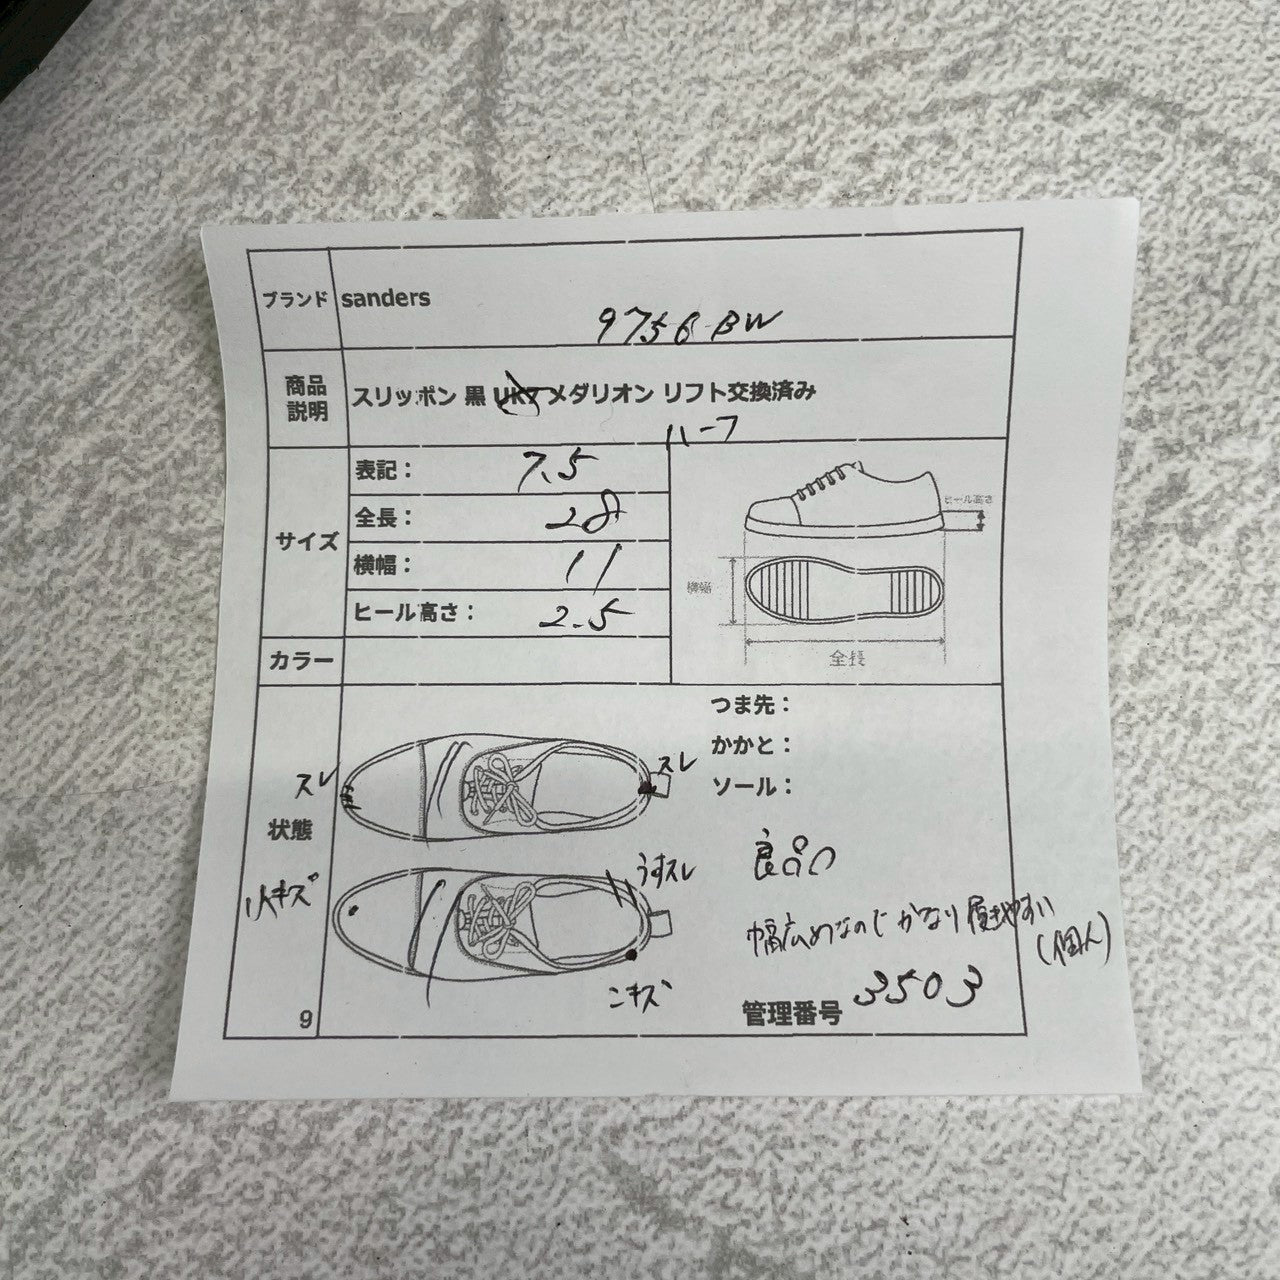 ブランド sanders
9756 BW
商品説明 スリッポン 黒 UK7 メダリオン リフト交換済み
ハーフ
サイズ
表記： 7.5
全長： 28
横幅： 11
ヒール高さ： 2.5
ヒール高さ
横幅
全長
カラー
つま先：
かかと：
ソール：
スレ
スレ
状態
うすスレ
小キズ
小キズ
良品
幅広めなので かなり履きやすい
(個人)
管理番号 3503
9